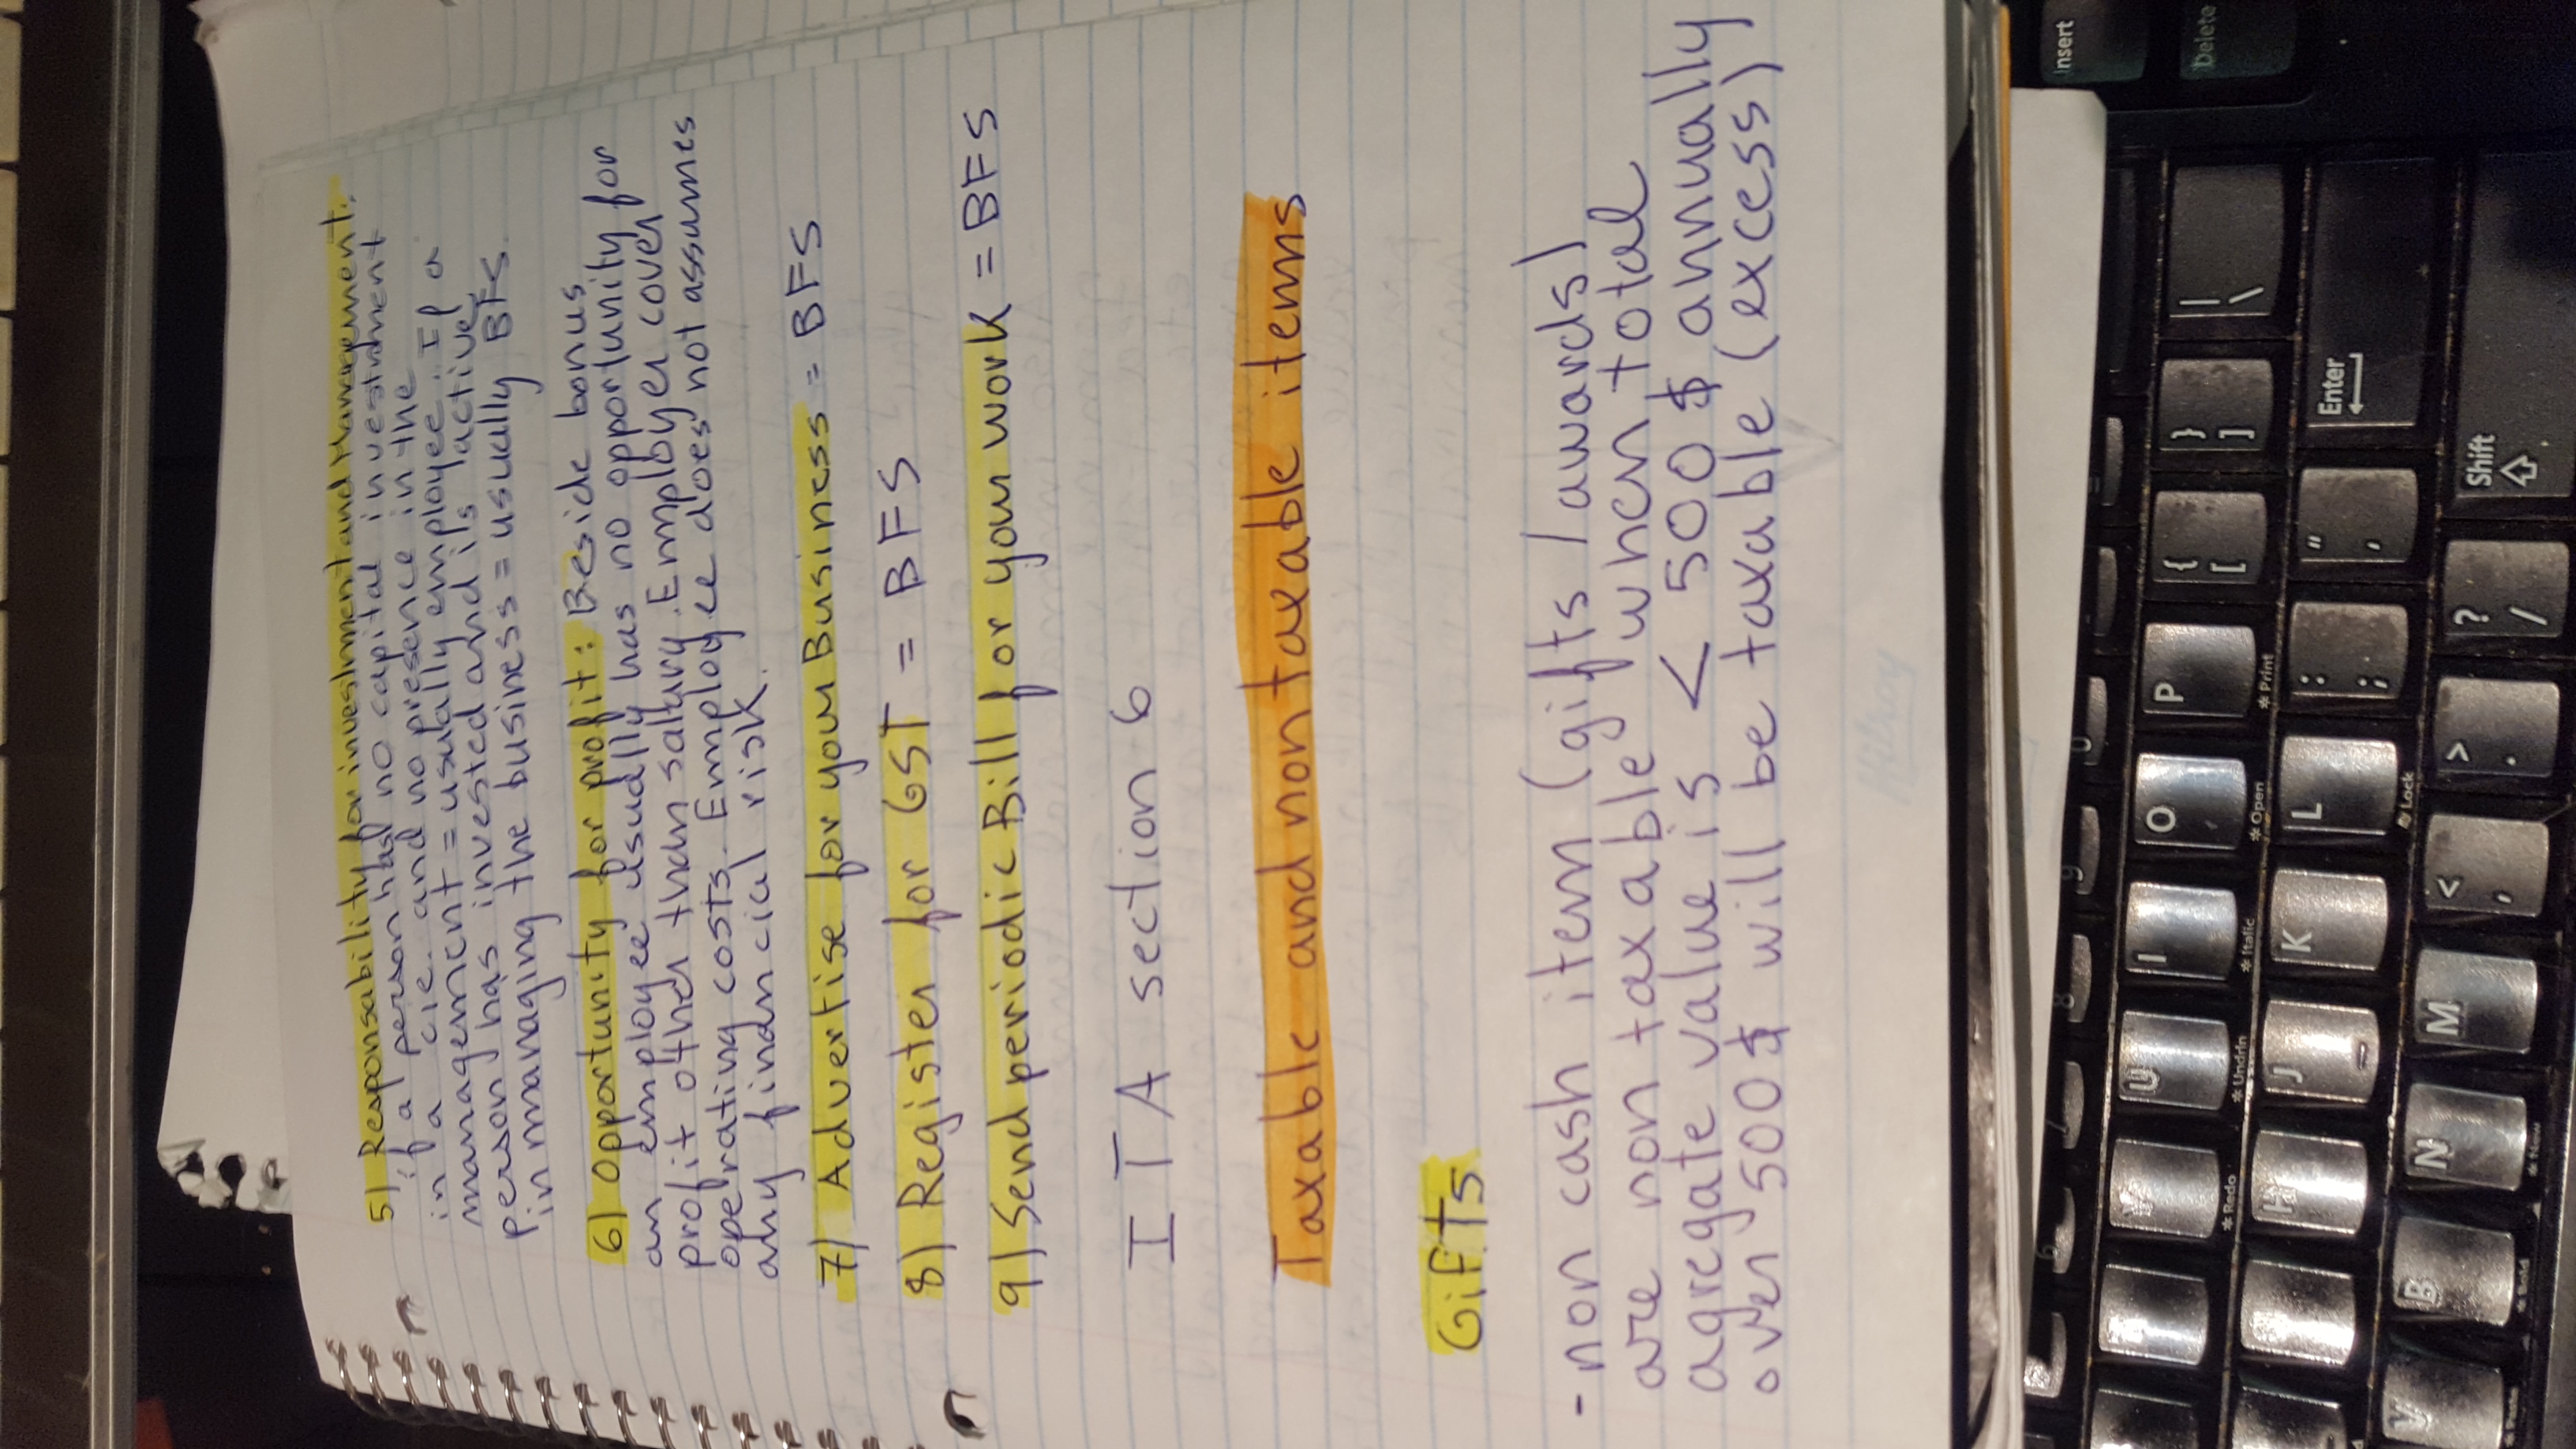 5) Responsability for investment and Management.
if a person has no capital investment
in a cie. and no presence in the
management = usually employee. If a
person has invested and is active
in managing the business = usually BFS.
6) opportunity for profit: Beside bonus
an employee usually has no opportunity for
profit other than salary. Employer cover
operating costs. Employee does not assumes
any financial risk.
7) Advertise for your Business = BFS
8) Register for GST = BFS
9) Send periodic Bill for your work = BFS
ITA section 6
Taxable and non taxeable items
GifTs
- non cash item (gifts / awards)
are non taxable when total
agregate value is < 500$ annually
over 500$ will be taxable (excess)
Insert
Delete
| \
} ]
{ [
P
* Print
O
* Open
I
* Italic
U
* Undrln
Y
* Redo
Enter
" '
: ;
L
* Lock
K
J
H
Shift
? /
> .
< ,
M
N
* New
B
* Bold
V